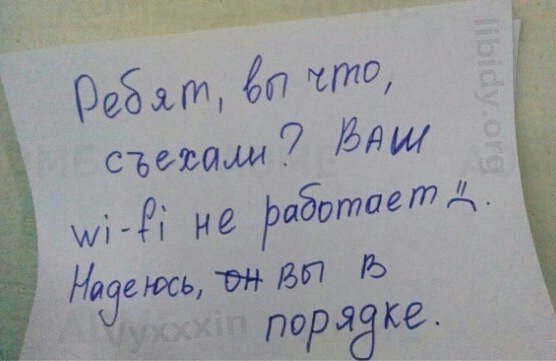 Ребят, вы что,
съехали? ВАШ
wi-fi не работает :(.
Надеюсь, он вы в
порядке.
libidy.org